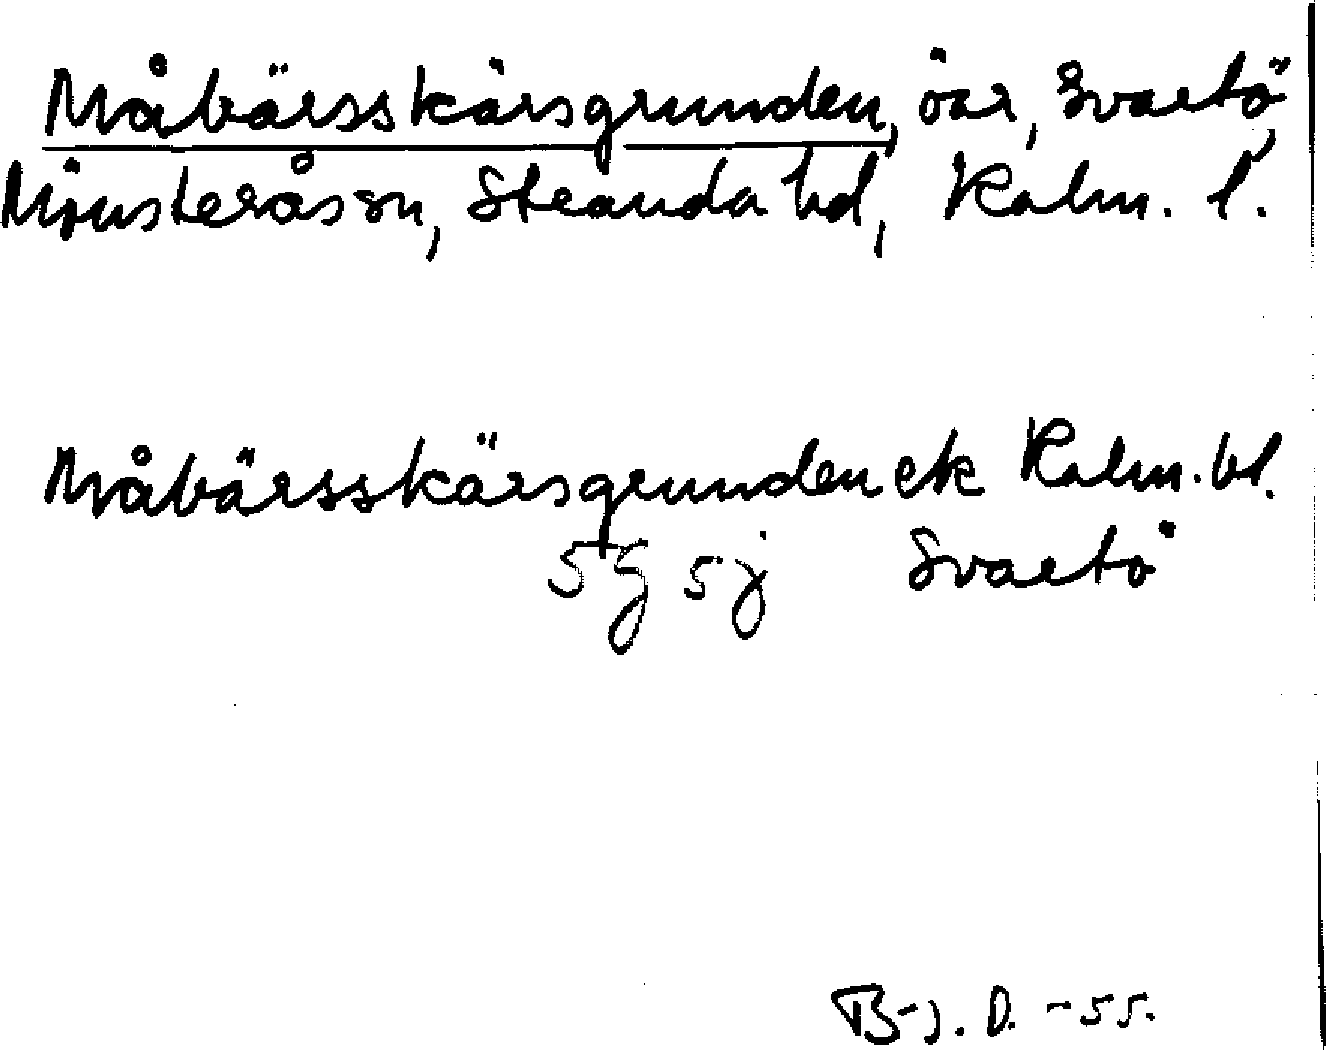 Måbärsskärsgrunden, öar, Svartö,
Mönsterås sn, Stranda hd, Kalm. l.
Måbärsskärsgrunden ek Kalm. bl.
5g 5j Svartö
B-j. D. -55.